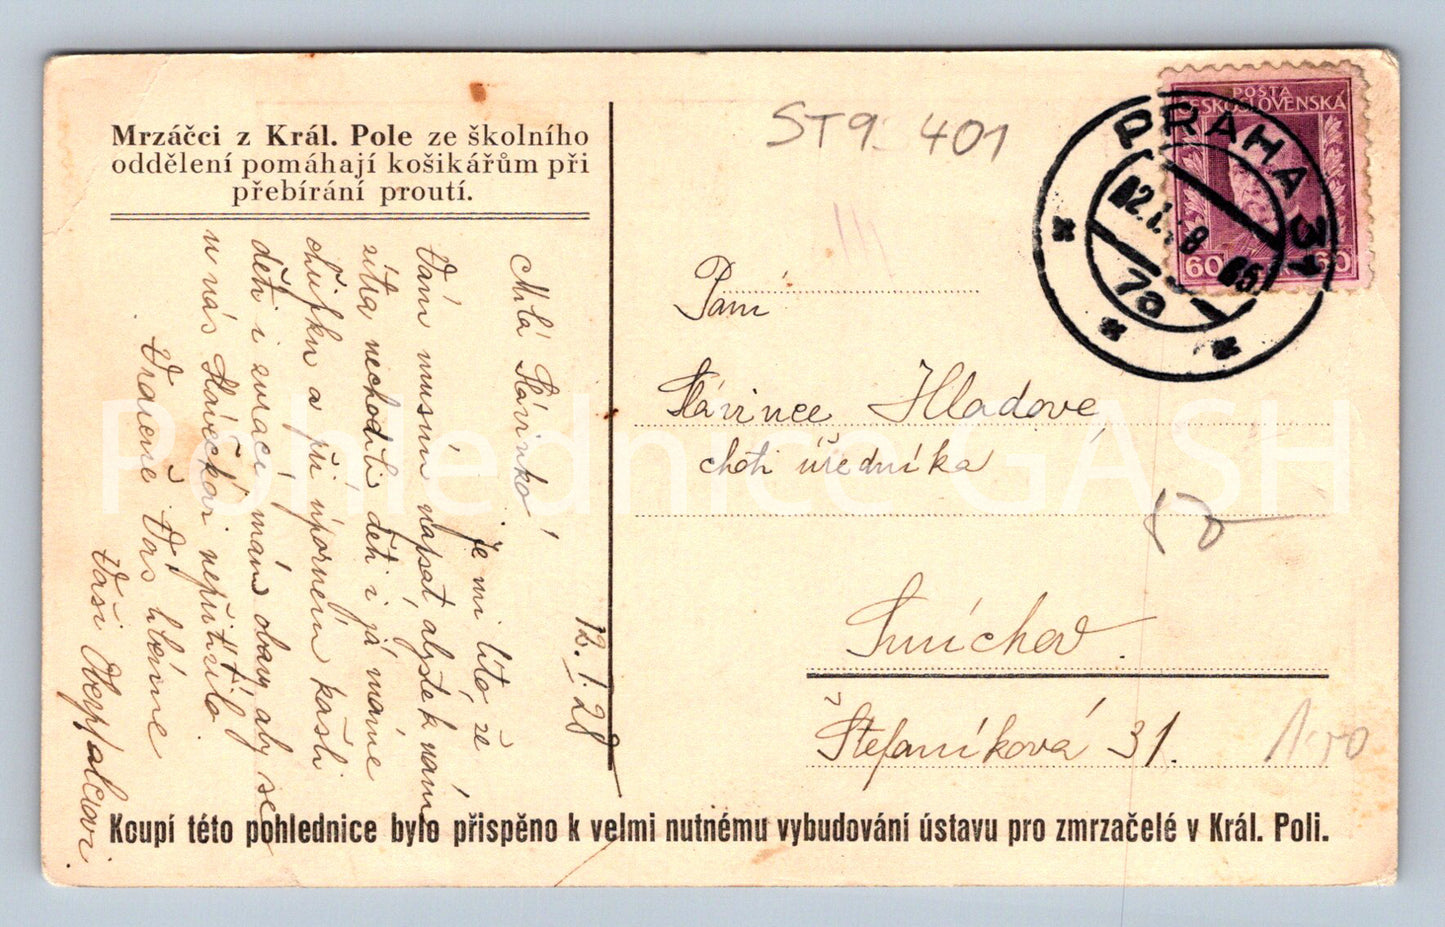 Mrzáčci z Král. Pole ze školního
oddělení pomáhají košikářům při
přebírání proutí.
Milá Slávinko!
Je mi líto, že
Vám musím napsat, abyste k nám
zítra nechodili, děti i já máme
chřipku a při úporném kašli
děti i zvrací, mám obavy aby se
u nás Slávečkovi nepřitížilo.
Vraceně Vás líbáme
Vaši
12.I.28
ST9 401
POSTA
ČESKOSLOVENSKÁ
60 60
PRAHA 31
12.I.28
7a
Paní
Slávince Hladové
choti úředníka
Smíchov.
Štefaníková 31.
150
Koupí této pohlednice bylo přispěno k velmi nutnému vybudování ústavu pro zmrzačelé v Král. Poli.
Pohlednice GASH